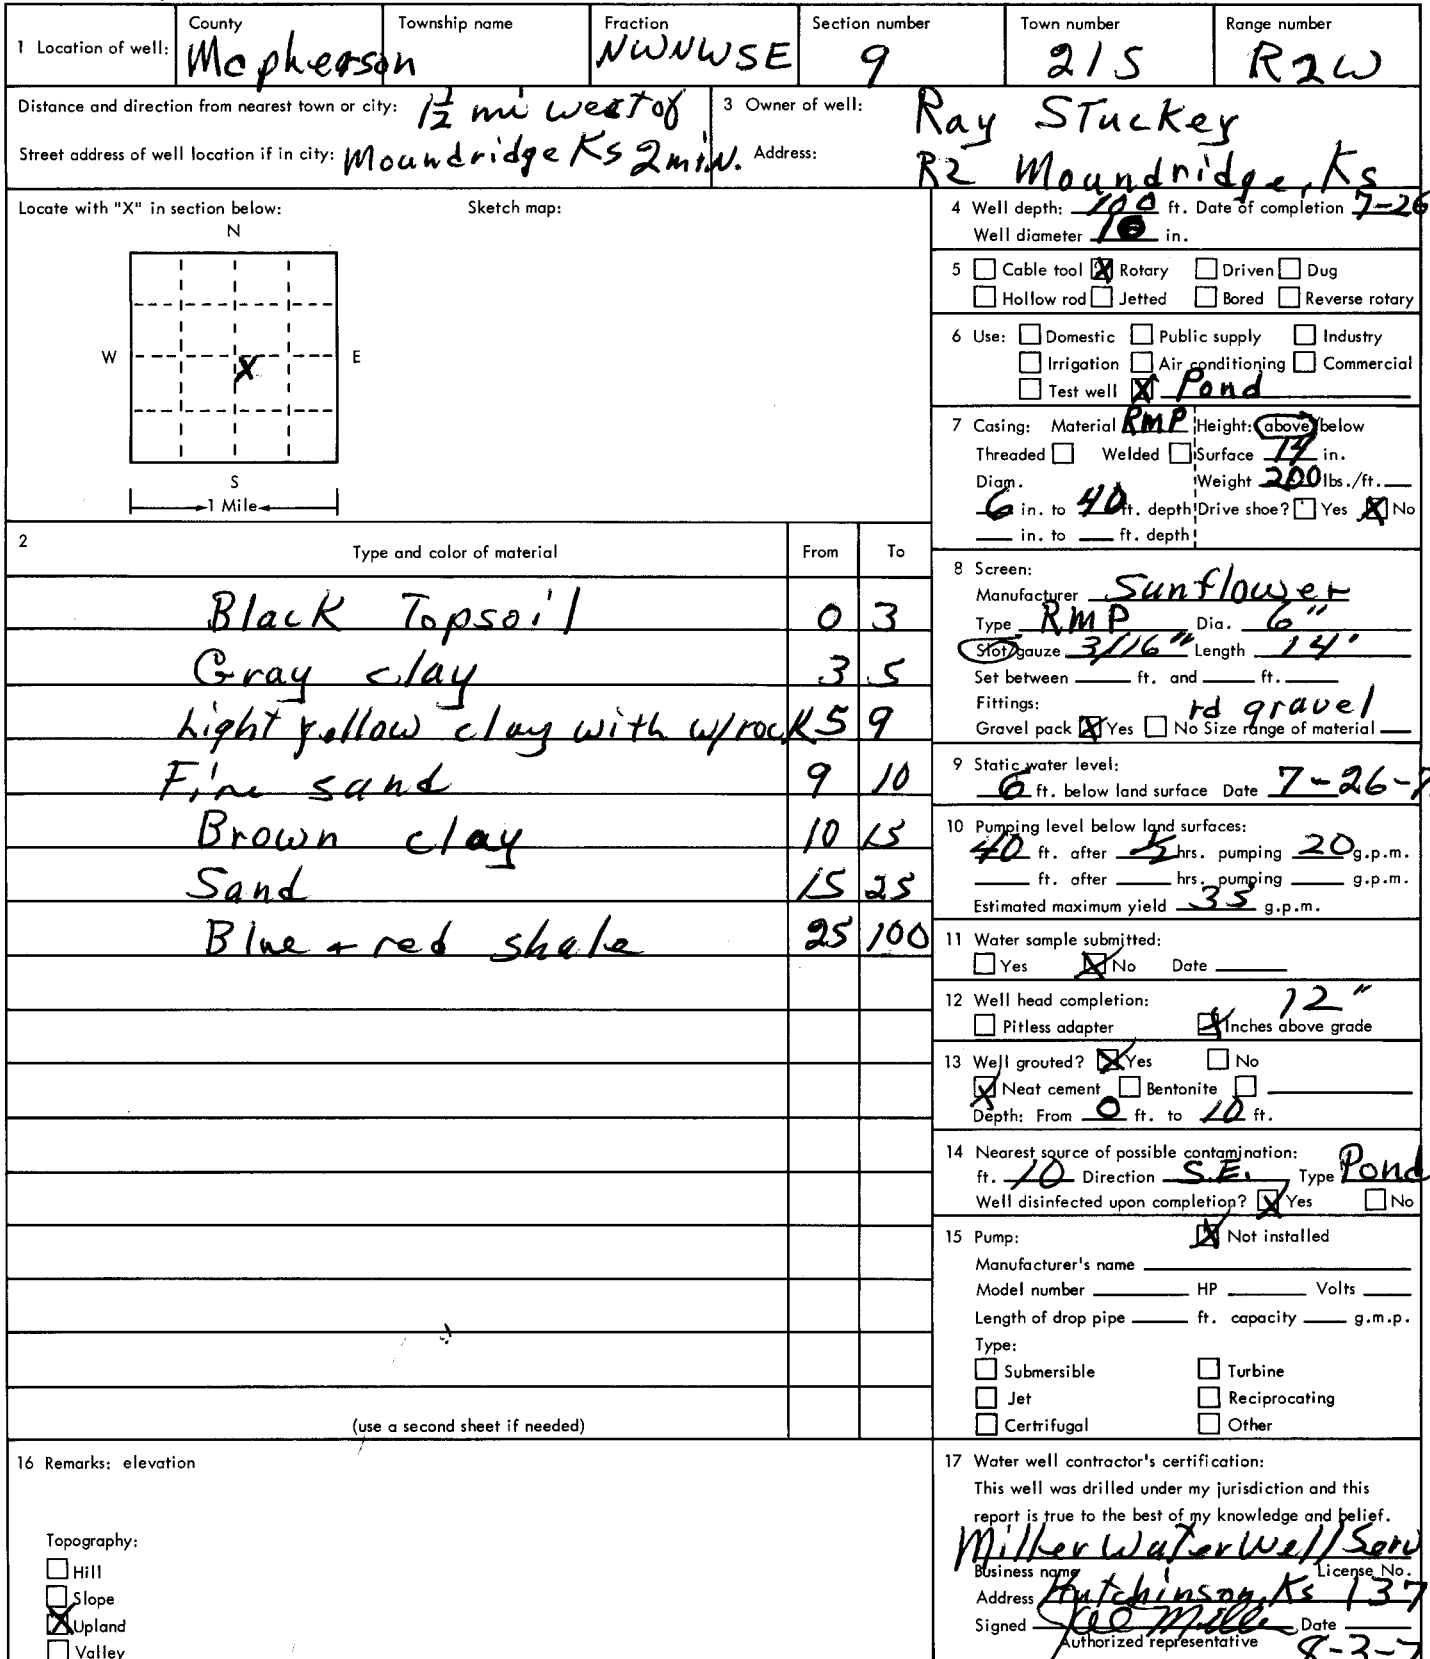 1 Location of well: County Township name Fraction Section number Town number Range number
Mcpherson NWNWSE 9 21S R2W
Distance and direction from nearest town or city: 1½ mi west of
Street address of well location if in city: Moundridge Ks 2mi N.
3 Owner of well: Ray Stuckey
Address: R2 Moundridge, Ks
Locate with "X" in section below: Sketch map:
N
W X E
S
1 Mile
2 Type and color of material From To
Black Topsoil 0 3
Gray clay 3 5
Light yellow clay with w/rock 5 9
Fine sand 9 10
Brown clay 10 15
Sand 15 25
Blue + red shale 25 100
(use a second sheet if needed)
16 Remarks: elevation
Topography:
Hill
Slope
X Upland
Valley
4 Well depth: 100 ft. Date of completion 7-26
Well diameter 10 in.
5 Cable tool X Rotary Driven Dug
Hollow rod Jetted Bored Reverse rotary
6 Use: Domestic Public supply Industry
Irrigation Air conditioning Commercial
Test well X Pond
7 Casing: Material RMP Height: above/below
Threaded Welded Surface 14 in.
Diam. Weight 200 lbs./ft.
6 in. to 40 ft. depth Drive shoe? Yes X No
in. to ft. depth
8 Screen:
Manufacturer Sunflower
Type RMP Dia. 6"
Slot/gauze 3/16" Length 14'
Set between ft. and ft.
Fittings: rd gravel
Gravel pack X Yes No Size range of material
9 Static water level:
6 ft. below land surface Date 7-26-7
10 Pumping level below land surfaces:
40 ft. after ½ hrs. pumping 20 g.p.m.
ft. after hrs. pumping g.p.m.
Estimated maximum yield 35 g.p.m.
11 Water sample submitted:
Yes X No Date
12 Well head completion: 12"
Pitless adapter X Inches above grade
13 Well grouted? X Yes No
X Neat cement Bentonite
Depth: From 0 ft. to 10 ft.
14 Nearest source of possible contamination:
ft. 10 Direction S.E. Type Pond
Well disinfected upon completion? X Yes No
15 Pump: X Not installed
Manufacturer's name
Model number HP Volts
Length of drop pipe ft. capacity g.m.p.
Type:
Submersible Turbine
Jet Reciprocating
Certrifugal Other
17 Water well contractor's certification:
This well was drilled under my jurisdiction and this
report is true to the best of my knowledge and belief.
Miller Water Well Serv
Business name License No.
Address Hutchinson, Ks 137
Signed Miller Date
Authorized representative 8-3-7